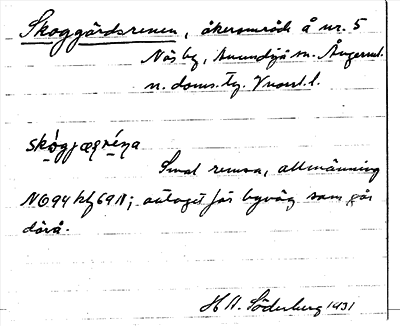 Skoggårdsrenen, åkerområde å nr. 5
Näs by, Anundsjö sn. Ångerml.
n. doms. tg. Vnorrl. l.
Smal remsa, allmänning
NO94 kfg69N; avtaget för byväg som går
därå.
H A. Söderberg 1931